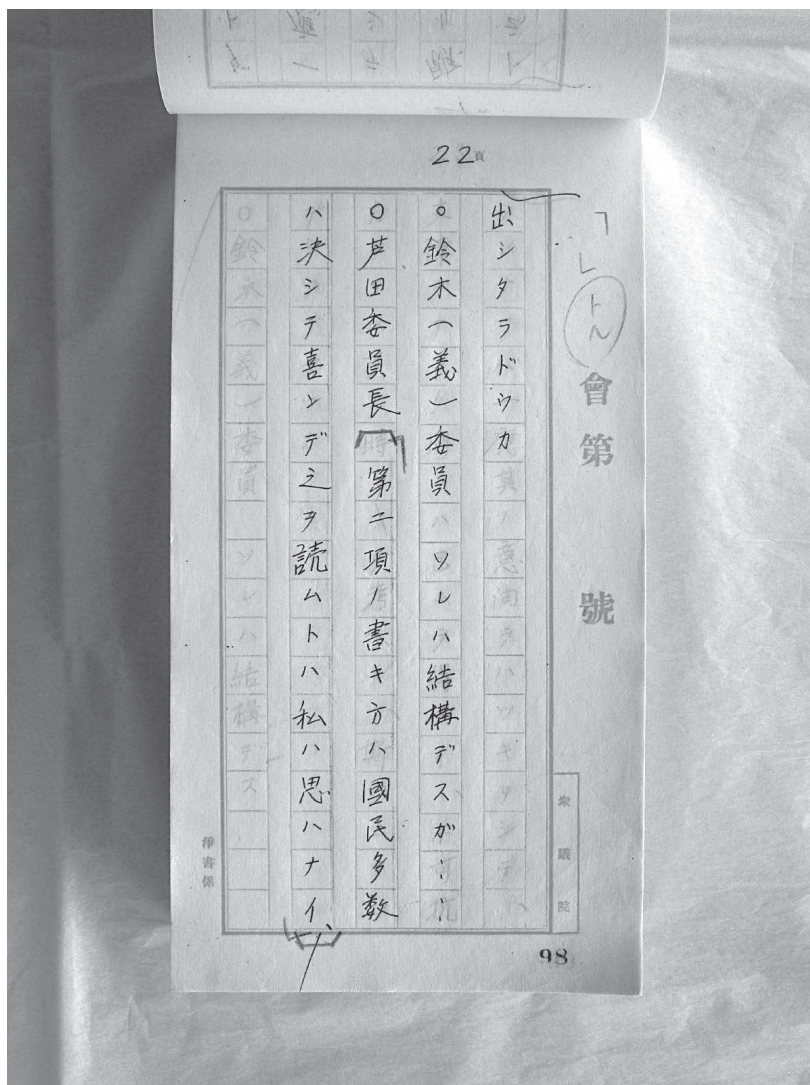 22頁
「」トル
會第　號
出シタラドウカ
○鈴木（義）委員　ソレハ結構デスガ……
○芦田委員長「第二項ノ書キ方ハ國民多数
ハ決シテ喜ンデ之ヲ読ムトハ私ハ思ハナイ」
衆議院
淨書係
98